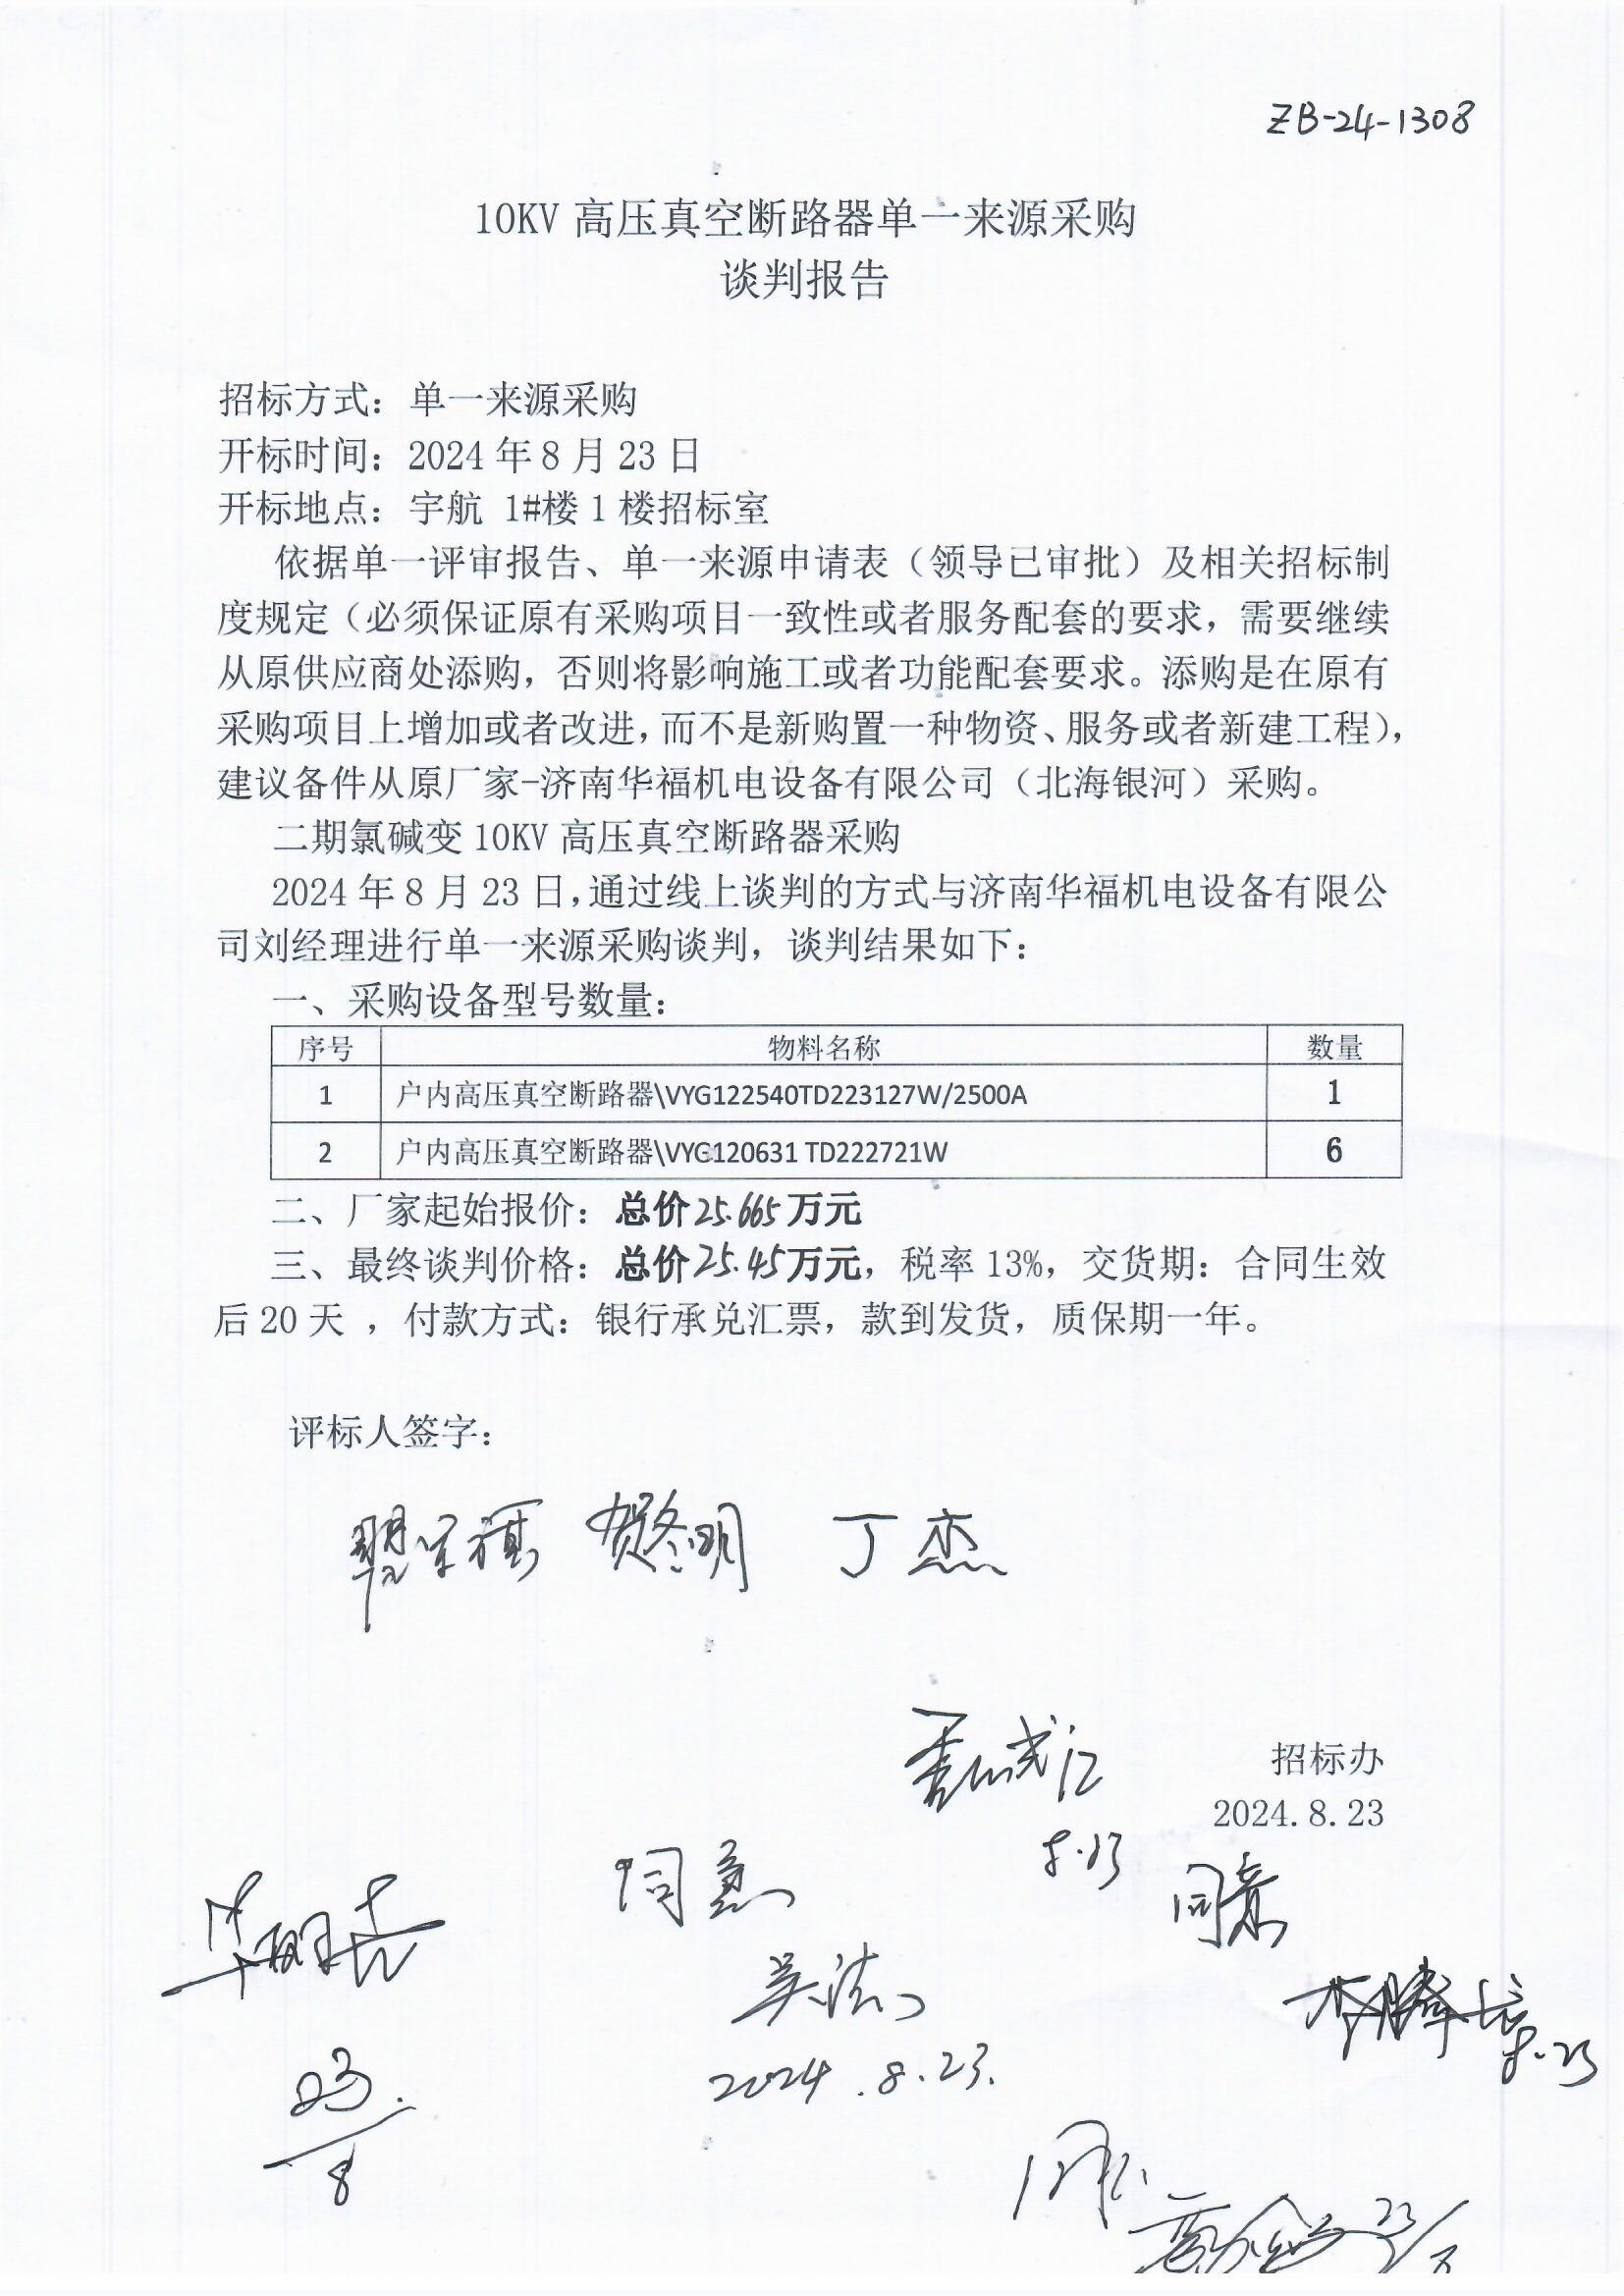 ZB-24-1308
10KV 高压真空断路器单一来源采购
谈判报告
招标方式：单一来源采购
开标时间：2024 年 8 月 23 日
开标地点：宇航 1#楼 1 楼招标室
依据单一评审报告、单一来源申请表（领导已审批）及相关招标制
度规定（必须保证原有采购项目一致性或者服务配套的要求，需要继续
从原供应商处添购，否则将影响施工或者功能配套要求。添购是在原有
采购项目上增加或者改进，而不是新购置一种物资、服务或者新建工程），
建议备件从原厂家-济南华福机电设备有限公司（北海银河）采购。
二期氯碱变 10KV 高压真空断路器采购
2024 年 8 月 23 日，通过线上谈判的方式与济南华福机电设备有限公
司刘经理进行单一来源采购谈判，谈判结果如下：
一、采购设备型号数量：
序号 物料名称 数量
1 户内高压真空断路器\VYG122540TD223127W/2500A 1
2 户内高压真空断路器\VYG120631 TD222721W 6
二、厂家起始报价：总价25.665万元
三、最终谈判价格：总价25.45万元，税率 13%，交货期：合同生效
后 20 天 ，付款方式：银行承兑汇票，款到发货，质保期一年。
评标人签字：
贺冬明 丁杰
招标办
2024.8.23
8.23
同意
同意
2024.8.23.
8.23
23
8